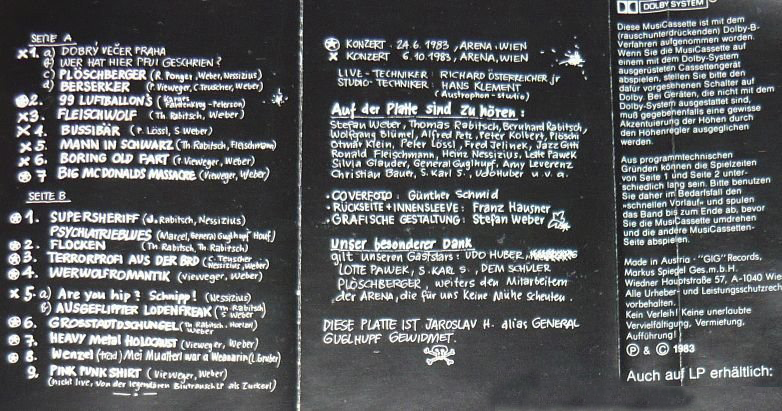 SEITE A
X1. a) DOBRÝ VEČER PRAHA
b) WER HAT HIER PFUI GESCHRIEN?
c) PLÖSCHBERGER (R. Ponger, Weber, Nessizius)
d) BERSERKER (P. Vieweger, C. Teuscher, Weber)
2. 99 LUFTBALLON'S (Karges Fahrenkrog-Peterson)
X3. FLEISCHWOLF (Th. Rabitsch, Weber)
X4. BUSSIBÄR (P. Lössl, S. Weber)
X5. MANN IN SCHWARZ (Th. Rabitsch, Fleischmann)
X6. BORING OLD FART (P. Vieweger, Weber)
7 BIG MCDONALDS MASSACRE (Vieweger, Weber)
SEITE B
1. SUPERSHERIFF (J. Rabitsch, Nessizius)
PSYCHIATRIEBLUES (Marcel, General Guglhupf Houf.)
2. FLOCKEN (Th. Rabitsch, Th. Rabitsch)
3. TERRORPROFI AUS DER BRD (C. Teuscher Nessizius, Weber)
4. WERWOLFROMANTIK (Vieweger, Weber)
X5 a) Are you hip? Schnipp! (Nessizius)
b) AUSGEFLIPPTER LODENFREAK (Th. Rabitsch) S. Weber
6. GROSSTADTDSCHUNGEL (Th. Rabitsch, Weber)
7. HEAVY METAL HOLOCAUST (Vieweger, Weber)
8. Wenzel (trad) Mei Muatterl war a Weanarin (L. Gruber)
9. PINK PUNK SHIRT (Vieweger, Weber)
(nicht live, von der legendären LP als Zuckerl)
KONZERT - 24.6.1983, ARENA, WIEN
X KONZERT 6.10.1983, ARENA, WIEN
LIVE-TECHNIKER: RICHARD ÖSTERREICHER jr
STUDIO-TECHNIKER: HANS KLEMENT
(Austrophon-Studio)
Auf der Platte sind zu hören:
Stefan Weber, Thomas Rabitsch, Bernhard Rabitsch,
Wolfgang Blümel, Alfred Petz, Peter Kolbert, Plöschi
Otmar Klein, Peter Lössl, Fred Jelinek, Jazz Gitti
Ronald Fleischmann, Heinz Nessizius, Lotte Pawek
Silvia Glauder, General Guglhupf, Amy Leverenz
Christian Bauer, S. Karl S., Udo Huber u.v.a.
• COVERFOTO: Günther Schmid
• RÜCKSEITE + INNENSLEEVE: Franz Hausner
• GRAFISCHE GESTALTUNG: Stefan Weber
Unser besonderer Dank
gilt unseren Gaststars: UDO HUBER,
LOTTE PAWEK, S. KARL S., DEM SCHÜLER
PLÖSCHBERGER, weiters den Mitarbeitern
der ARENA, die für uns keine Mühe scheuten.
DIESE PLATTE IST JAROSLAV H. alias GENERAL
GUGLHUPF GEWIDMET.
DOLBY SYSTEM
Diese MusiCassette ist mit dem
(rauschunterdrückenden) Dolby-B-
Verfahren aufgenommen worden.
Wenn Sie die MusiCassette auf
einem mit dem Dolby-System
ausgerüsteten Cassettengerät
abspielen, stellen Sie bitte den
dafür vorgesehenen Schalter auf
Dolby. Bei Geräten, die nicht mit dem
Dolby-System ausgestattet sind,
muß gegebenenfalls eine gewisse
Akzentuierung der Höhen durch
den Höhenregler ausgeglichen
werden.
Aus programmtechnischen
Gründen können die Spielzeiten
von Seite 1 und Seite 2 unter-
schiedlich lang sein. Bitte benutzen
Sie daher im Bedarfsfall den
»schnellen Vorlauf« und spulen
das Band bis zum Ende ab, bevor
Sie die MusiCassette umdrehen
und die andere MusiCassetten-
Seite abspielen.
Made in Austria · "GIG" Records,
Markus Spiegel Ges.m.b.H.
Wiedner Hauptstraße 57, A-1040 Wie
Alle Urheber- und Leistungsschutzrech
vorbehalten.
Kein Verleih! Keine unerlaubte
Vervielfältigung, Vermietung,
Aufführung!
Ⓟ & © 1983
Auch auf LP erhältlich: